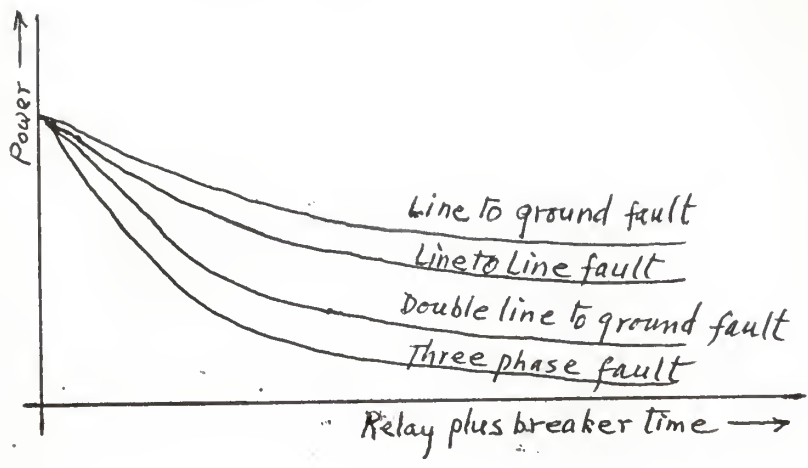 Power
Line to ground fault
Line to Line fault
Double line to ground fault
Three phase fault
Relay plus breaker time